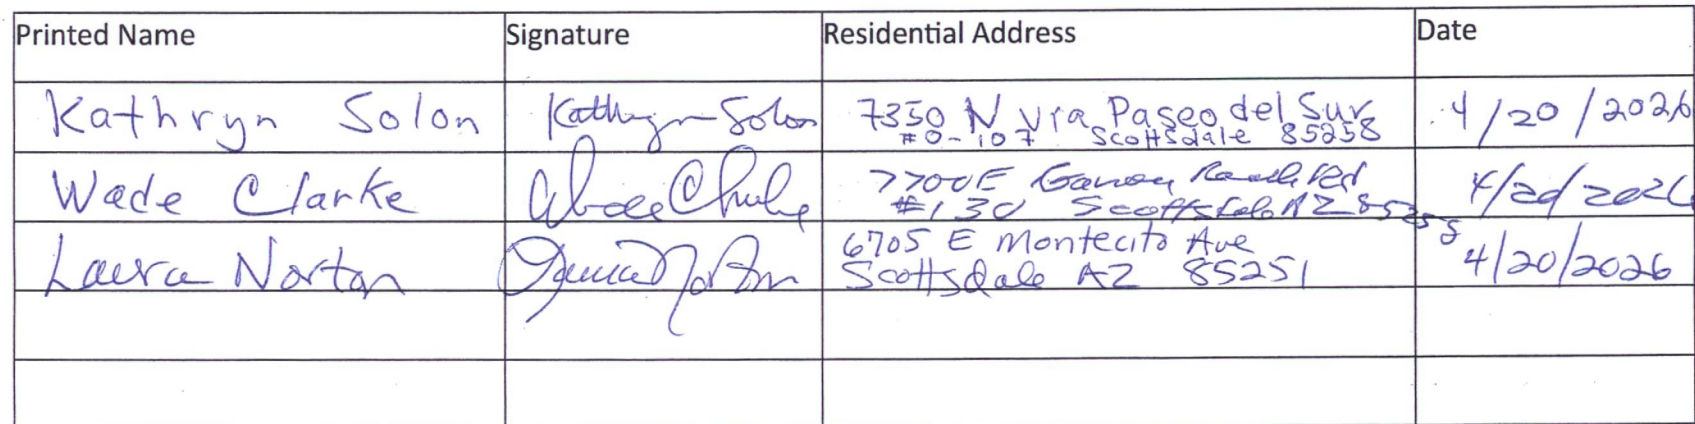 Printed Name Signature Residential Address Date
Kathryn Solon Kathryn Solon 7350 N Via Paseo del Sur 4/20/2026
#O-107 Scottsdale 85258
Wade Clarke Wade Clarke 7700 E Gainey Ranch Rd 4/20/2026
#130 Scottsdale AZ 85258
Laura Norton Laura Norton 6705 E Montecito Ave 4/20/2026
Scottsdale AZ 85251